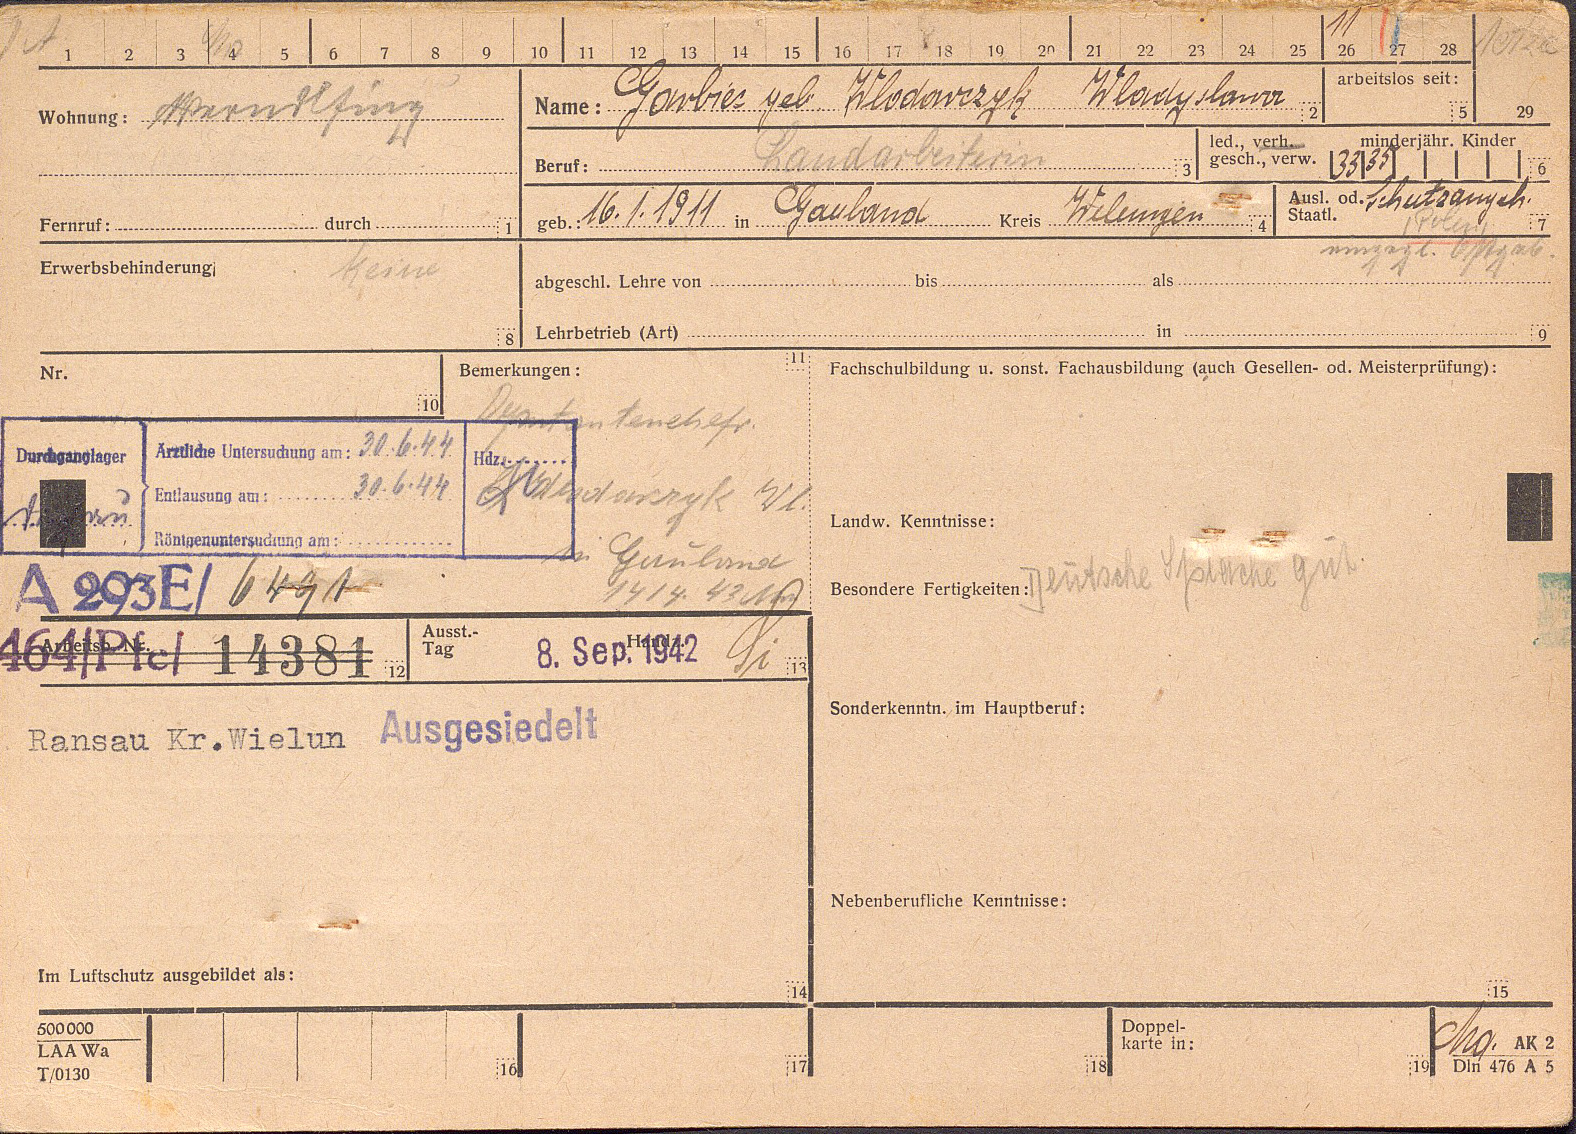 1 2 3 4 5 6 7 8 9 10 11 12 13 14 15 16 17 18 19 20 21 22 23 24 25 26 27 28
11
Wohnung:
Name: Garbiec geb Wlodarczyk Wladyslawa 2
arbeitslos seit: 5 29
Beruf: Landarbeiterin 3
led., verh. gesch., verw.
minderjähr. Kinder 33 35 6
Fernruf: durch 1
geb.: 16.1.1911 in Gauland Kreis Welungen 4
Ausl. od. Staatl. Schutzangeh. 7
(Polen)
Erwerbsbehinderung: keine 8
abgeschl. Lehre von bis als
Lehrbetrieb (Art) in 9
Nr. 10
Bemerkungen: 11
Fachschulbildung u. sonst. Fachausbildung (auch Gesellen- od. Meisterprüfung):
Durchganglager
Ärztliche Untersuchung am: 30.6.44
Entlausung am: 30.6.44
Röntgenuntersuchung am:
Hdz.
Wlodarczyk Wl.
in Gauland
Landw. Kenntnisse:
Besondere Fertigkeiten: Deutsche Sprache gut.
A 293E/ 6491
Arbeitsb. Nr. 464/Pfc/ 14381 12
Ausst.-Tag 8. Sep. 1942 Handz. Si 13
Ransau Kr.Wielun Ausgesiedelt
Sonderkenntn. im Hauptberuf:
Nebenberufliche Kenntnisse:
Im Luftschutz ausgebildet als: 14
15
500000
LAA Wa
T/0130
16 17 18
Doppel-
karte in: 19
AK 2
Din 476 A 5